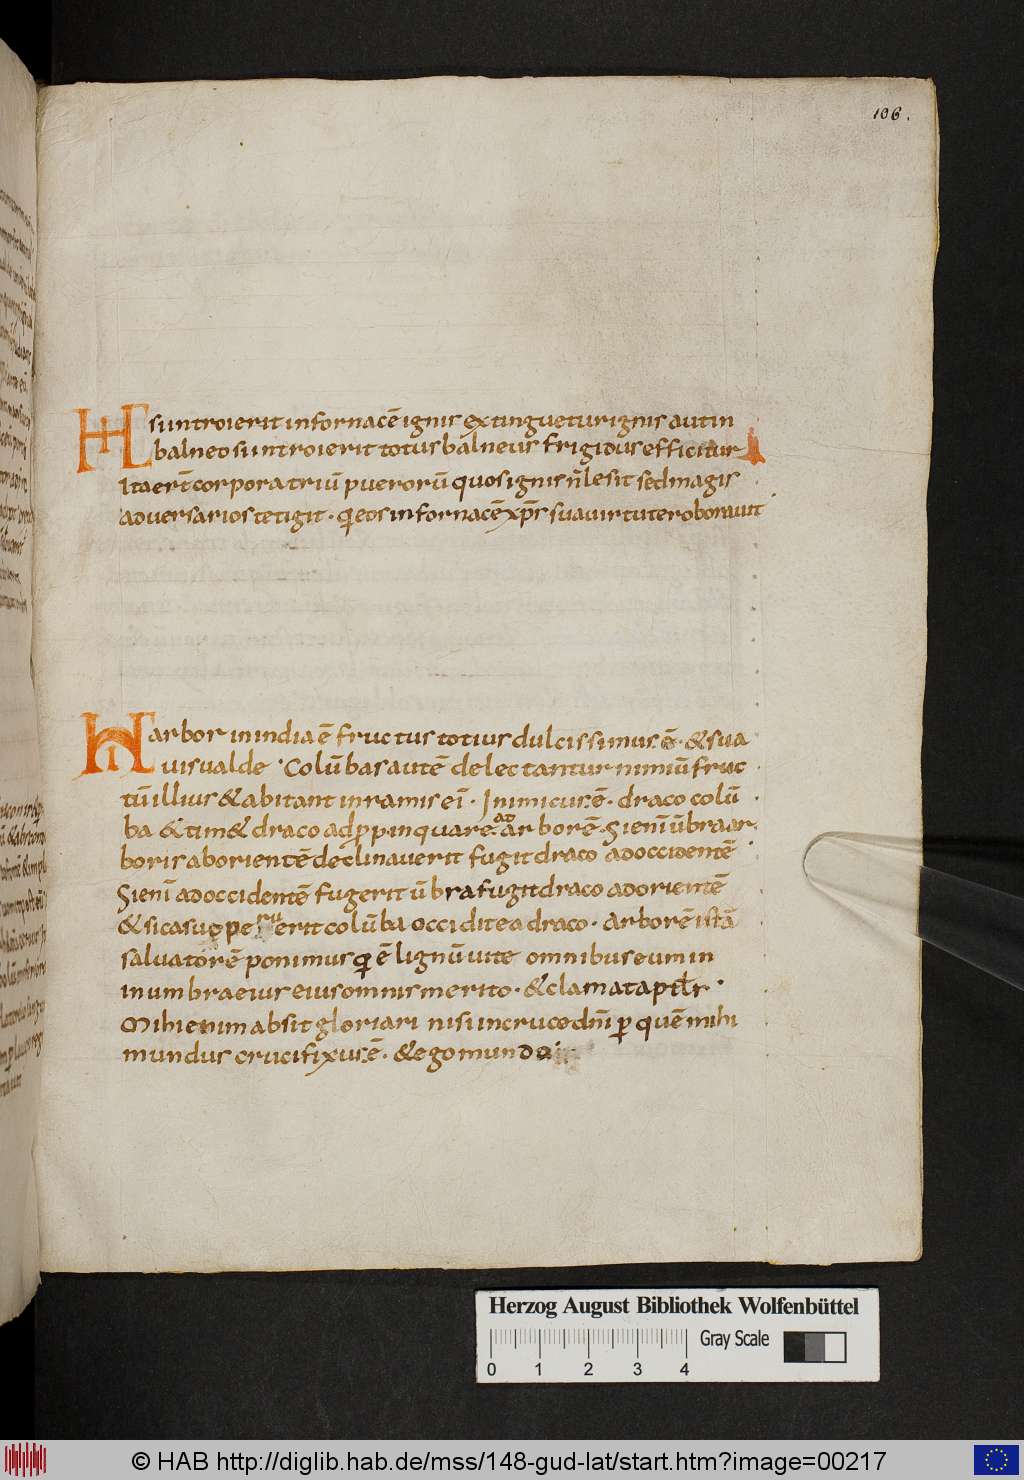 106.
Hic si introierit in fornacē ignis extinguetur ignis aut in
balneo si introierit totus balneus frigidus efficitur
Ita erāt corpora triū puerorū quos ignis n̄ lesit sed magis
adversarios tetigit · q̄ eos in fornacē xp̄s sua virtute roboravit
arbor in india ē fructus totius dulcissimus ē · & sua
vis valde · Colūbas autē delectantur nimiū fruc
tū illius & abitant in ramis ei · Inimicus ē · draco colū
ba & tim& draco ad p̄pinquare ad arborē · Si enī ūbra ar
boris ab orientē declinaverit fugit draco ad occidentē
Si enī ad occidentē fugerit ūbra fugit draco ad orientē
& si casu erit colūba occidit ea draco · arborē istā
salvatorē ponimus q̄ ē lignū vite omnibus eum in
in umbra eius omnis merito · & clamat apłs ·
Mihi enim absit gloriari nisi in cruce dn̄i p quē mihi
mundus crucifixus ē · & ego mundo
Herzog August Bibliothek Wolfenbüttel
Gray Scale
0 1 2 3 4
© HAB http://diglib.hab.de/mss/148-gud-lat/start.htm?image=00217